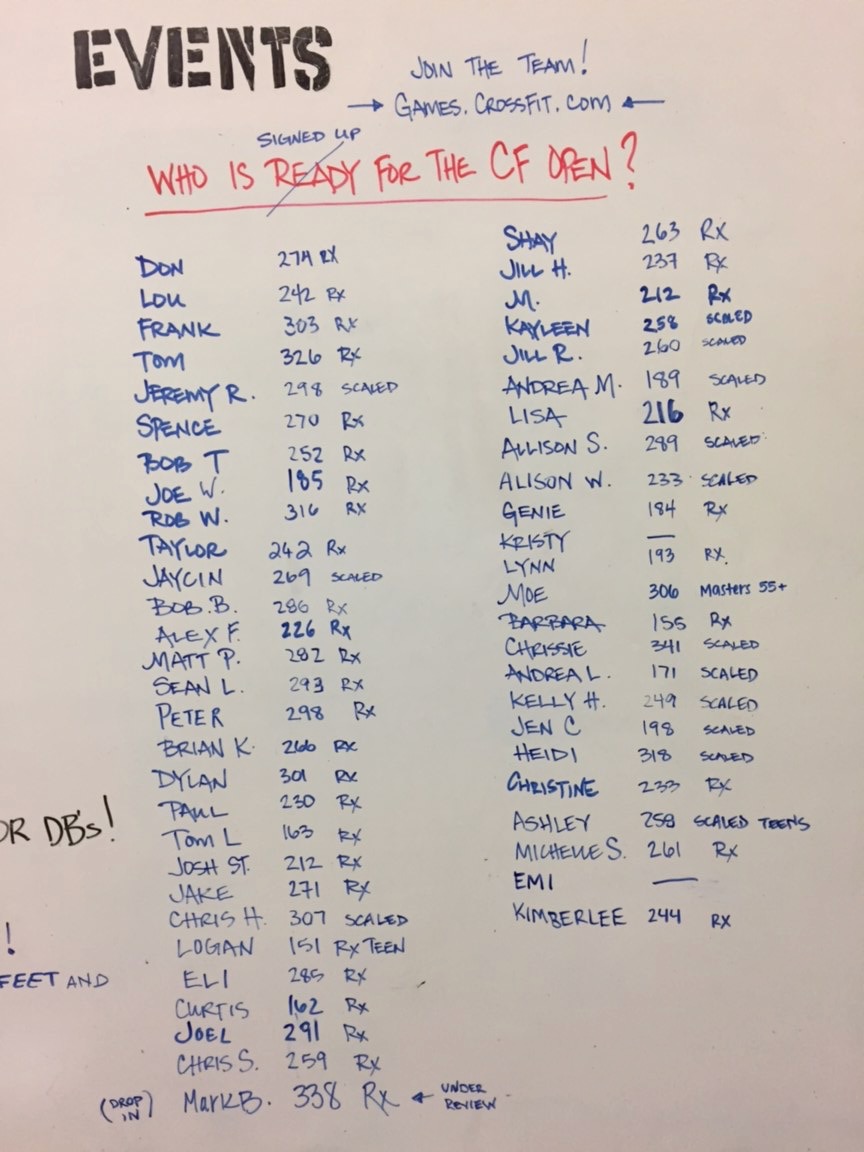 EVENTS
JOIN THE TEAM!
→ GAMES.CROSSFIT.COM ←
SIGNED UP
WHO IS READY FOR THE CF OPEN?
DON 274 RX
LOU 242 Rx
FRANK 303 Rx
TOM 326 Rx
JEREMY R. 298 SCALED
SPENCE 270 Rx
BOB T 252 Rx
JOE W. 185 Rx
ROB W. 316 Rx
TAYLOR 242 Rx
JAYCIN 269 SCALED
BOB.B. 286 Rx
ALEX F. 226 Rx
MATT P. 282 Rx
SEAN L. 293 Rx
PETER 298 Rx
BRIAN K. 266 Rx
DYLAN 301 Rx
PAUL 230 Rx
TOM L 163 Rx
JOSH ST. 212 Rx
JAKE 271 Rx
CHRIS H. 307 SCALED
LOGAN 151 Rx TEEN
ELI 285 Rx
CURTIS 162 Rx
JOEL 291 Rx
CHRIS S. 259 Rx
(DROP IN) MARK B. 338 Rx ← UNDER REVIEW
SHAY 263 Rx
JILL H. 237 Rx
M. 212 Rx
KAYLEEN 258 SCALED
JILL R. 260 SCALED
ANDREA M. 189 SCALED
LISA 216 Rx
ALLISON S. 289 SCALED
ALISON W. 233 SCALED
GENIE 184 Rx
KRISTY —
LYNN 193 Rx.
MOE 306 Masters 55+
BARBARA 155 Rx
CHRISSIE 341 SCALED
ANDREA L. 171 SCALED
KELLY H. 249 SCALED
JEN C 198 SCALED
HEIDI 318 SCALED
CHRISTINE 233 Rx
ASHLEY 259 SCALED TEENS
MICHELLE S. 261 Rx
EMI —
KIMBERLEE 244 RX
OR DB's!
!
FEET AND